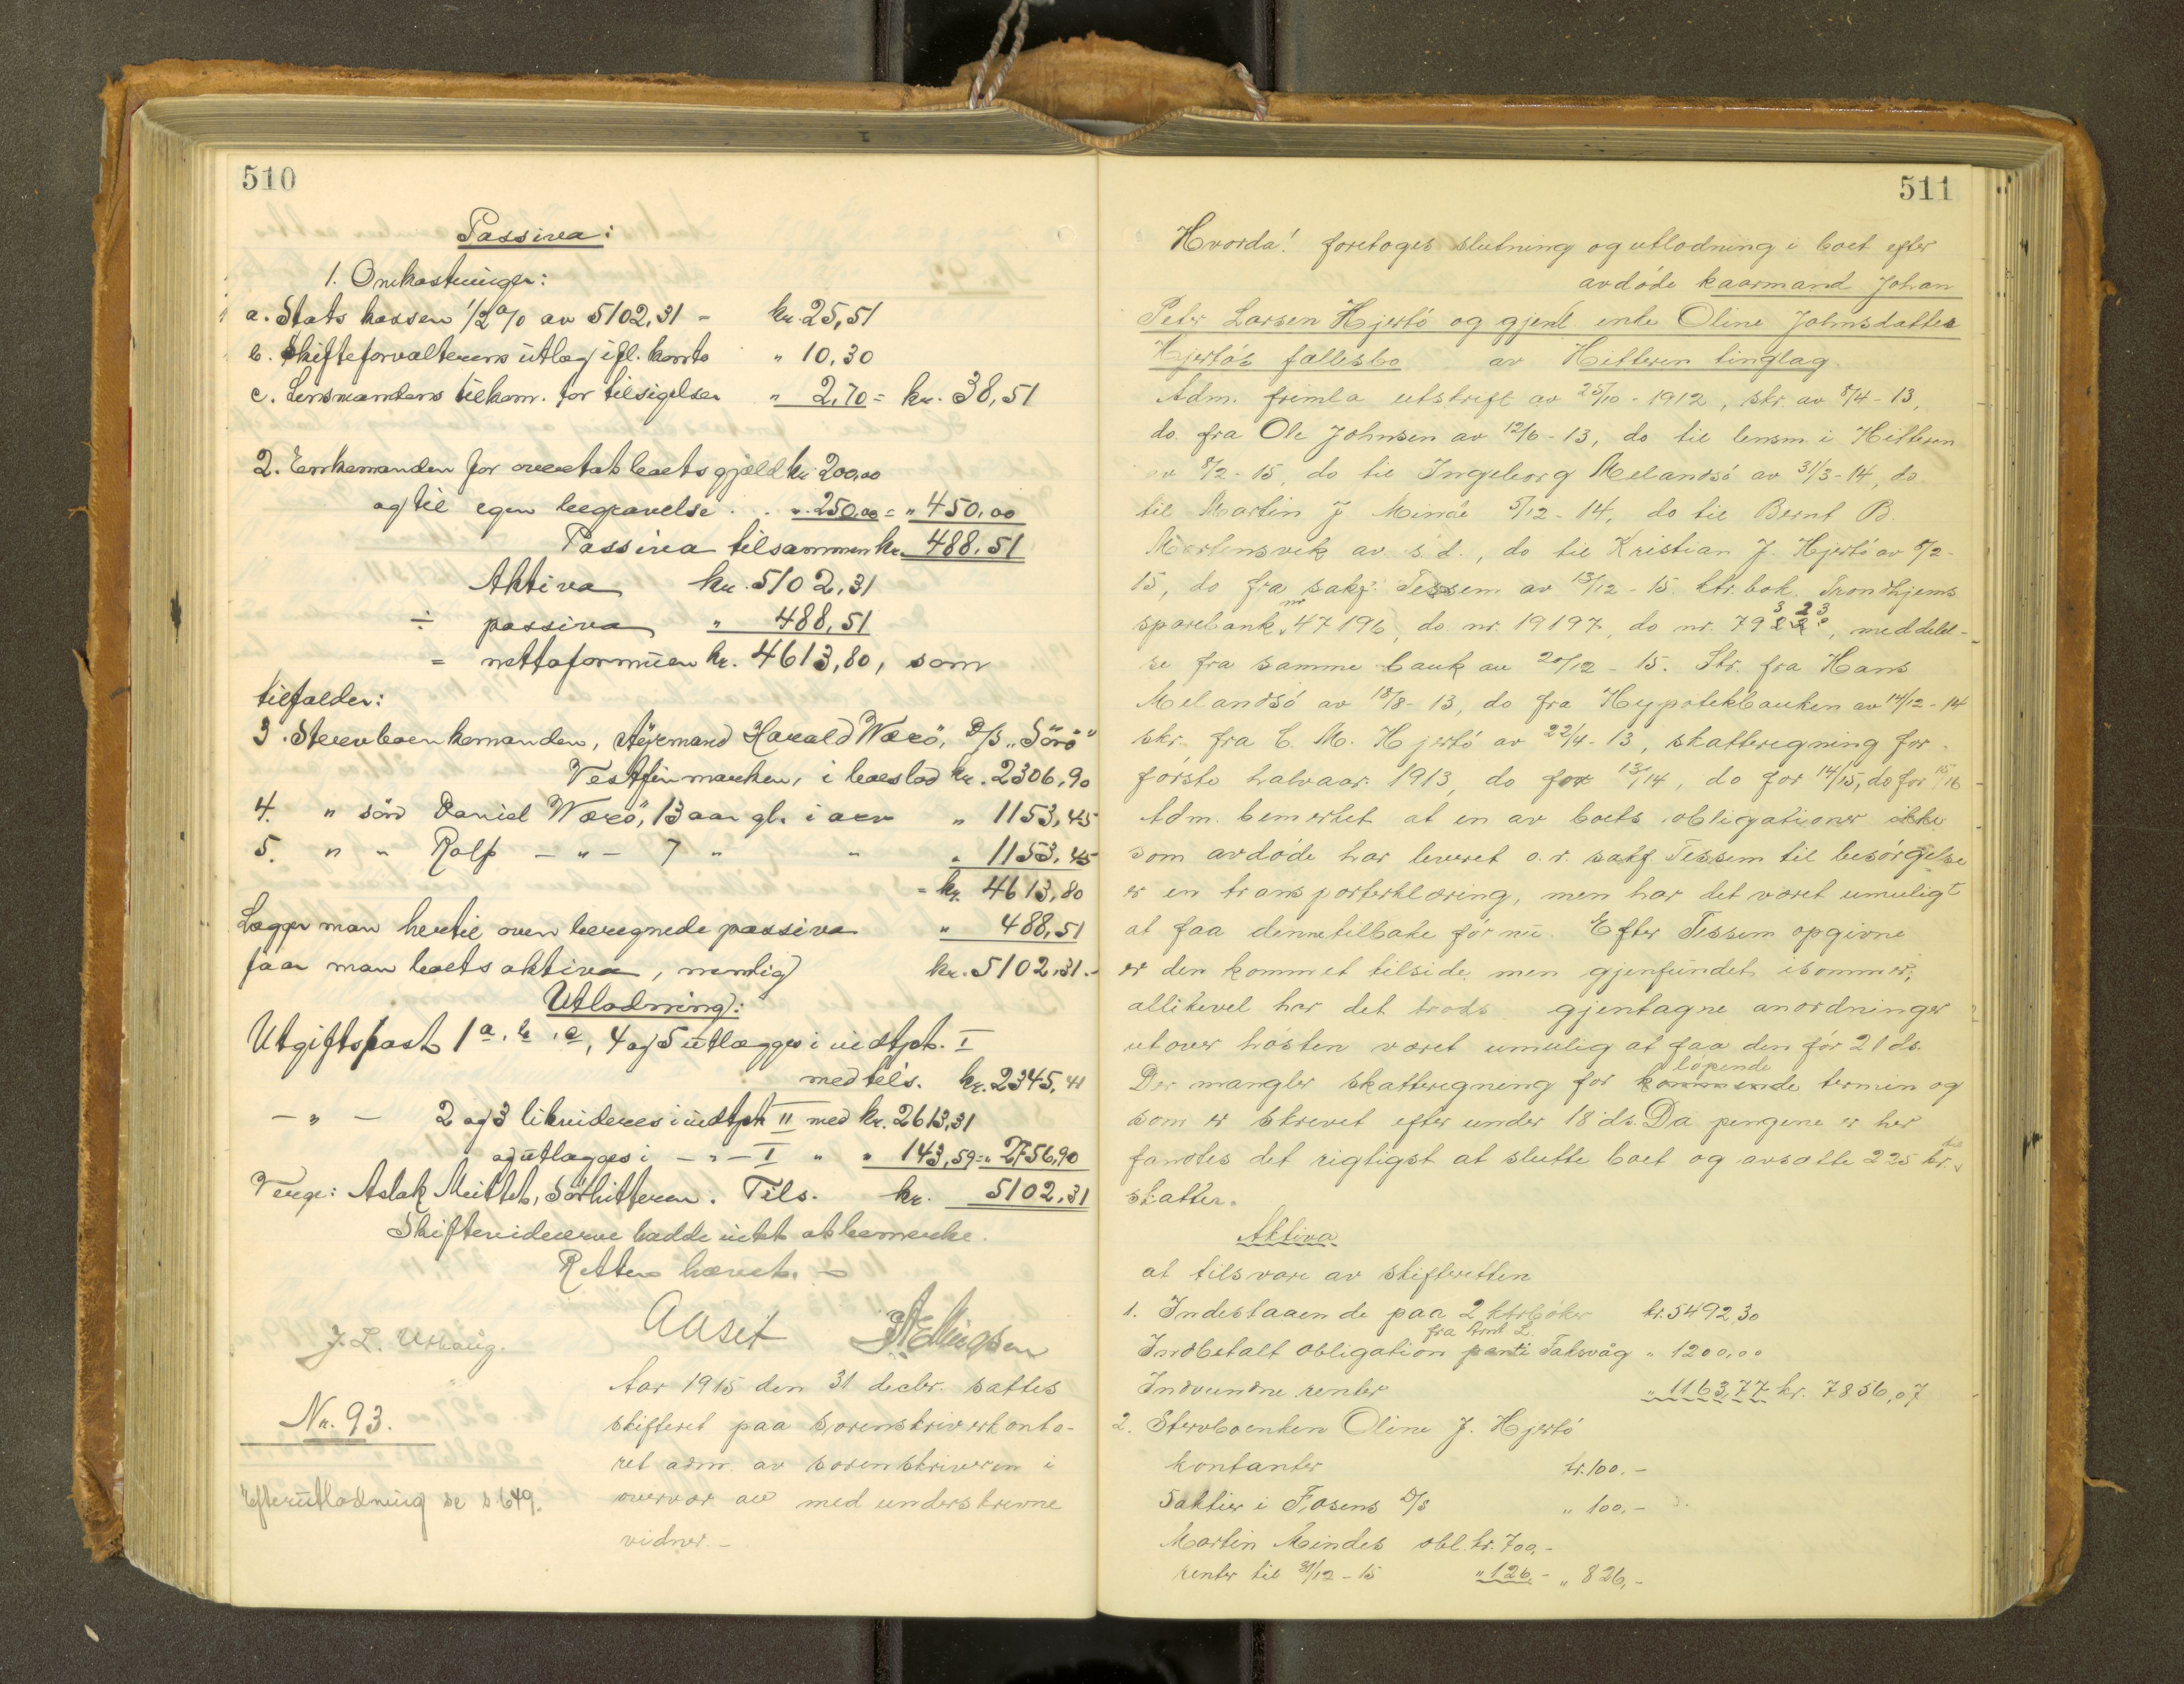 510
Passiva:
1. Omkostninger:
a. Stats kassen 1/2 % av 5102,31 = kr. 25,51
b. Skifteforvalterens utlæg ifl. konto " 10,30
c. Lensmandens tilkom. for tilsigelser " 2,70 = kr. 38,51
2. Enkemanden for overtat boets gjæld kr. 200,00
og til egen begravelse . . " 250,00 = " 450,00
Passiva tilsammen kr. 488,51
Aktiva kr. 5102,31
÷ passiva " 488,51
= nettoformuen kr. 4613,80, som
tilfalder:
3. Stervboenkemanden, styrmand Harald Værö, D/S "Sörö"
Vestfinmarken, i boeslod kr. 2306,90
4. " sön Daniel Værö, 13 aar gl. i arv " 1153,45
5. " " Rolf - " - 7 " " " 1153,45
= kr. 4613,80
Lægger man hertil oven beregnede passiva " 488,51
faar man boets aktiva, nemlig kr. 5102,31.-
Utlodning:
Utgiftspost 1 a, b, c, 4 og 5 utlægges i indtpt. I
med tils. kr. 2345,41
- " - 2 og 3 likvideres i indtpt II med kr. 2613,31
og utlægges i - " - I " " 143,59 = " 2756,90
Verge: Aslak Meittet, Sörhitteren. Tils. kr. 5102,31
Skiftevidnerne hadde intet at bemerke.
Retten hævet. -
J. L. Uthaug. Aaset Ellingsen
Nr. 93.
Efterutlodning se s 649.
Aar 1915 den 31 decbr. sattes
skifteret paa sorenskriverkonto-
ret adm. av sorenskriveren i
overvær av med underskrevne
vidner.-
511
Hvorda! foretoges slutning og utlodning i boet efter
avdøde kaarmand Johan
Peter Larsen Hjertö og gjenl enke Oline Johnsdatter
Hjertö's fællesbo av Hitteren tinglag.
Adm. fremla utskrift av 25/10 - 1912, skr. av 8/4 - 13,
do. fra Ole Johnsen av 12/6 - 13, do til lensm i Hitteren
av 8/2 - 15, do til Ingeborg Melandsö av 31/3 - 14, do
til Martin J Minde 5/12 - 14, do til Bernt B.
Mortensvik av s.d., do til Kristian J. Hjertö av 8/2 -
15, do fra sakf. Tessem av 13/12 - 15 ktr. bok Trondhjems
sparebank nr 47196, do nr. 19197, do nr. 79323, meddelel-
se fra samme bank av 20/12 - 15. Skr. fra Hans
Melandsö av 18/8 - 13, do fra Hypotekbanken av 14/12 - 14
skr. fra C. M. Hjertö av 22/4 - 13, skatteregning for
förste halvaar 1913, do for 13/14, do for 14/15, do for 15/16
Adm. bemerket at en av boets obligationer ikke
som avdöde har leveret o.r. sakf Tessem til besörgelse
er en transporterklæring, men har det været umuligt
at faa denne tilbake för nu. Efter Tessem opgivne
er den kommet tilside, men gjenfundet i sommer,
allikevel har det trods gjentagne anordninger
utover hösten været umulig at faa den för 21 ds.
Der mangler skatteregning for kommende löpende termin og
som er skrevet efter under 18 ds. Da pengene er her
fandtes det rigtigst at slutte boet og avsætte 225 kr. til
skatter.
Aktiva
at tilsvare av skifteretten
1. Indestaaende paa 2 ktrböker kr. 5492,30
Indbetalt obligation fra Arnt L. Taksvåg " 1200,00
Indvundne renter " 1163,77 kr. 7856,07
2. Stervboenken Oline J. Hjertö
kontanter kr. 100.-
5 aktier i Fosens D/S " 100,-
Martin Mindes obl. kr. 700,-
renter til 31/12 - 15 " 126,- " 826,-